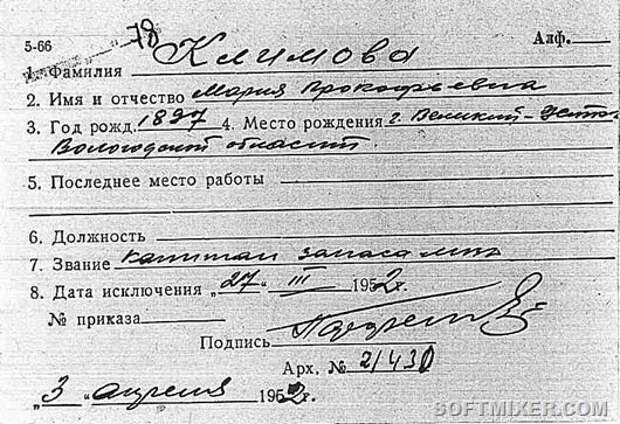 5-66 78 Алф.
1. Фамилия Климова
2. Имя и отчество Мария Прокофьевна
3. Год рожд. 1897 4. Место рождения г. Великий-Устюг
Вологодской области.
5. Последнее место работы
6. Должность
7. Звание капитан запаса
8. Дата исключения „27“ III 1952г.
№ приказа
Подпись
Арх. № 21430
„3“ апреля 1952г.
SOFTMIXER.COM